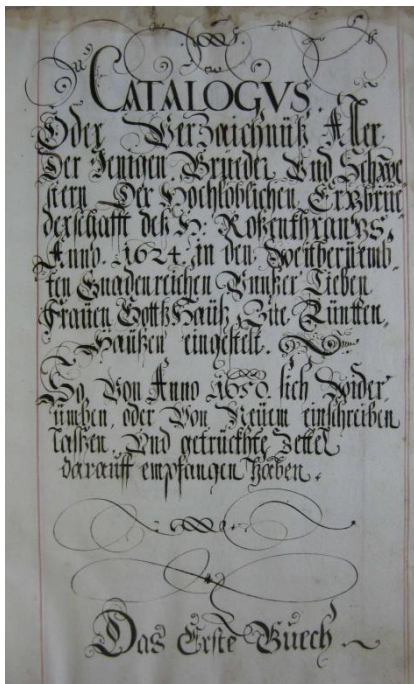 CATALOGVS.
Oder Verzaichnüß Aller
Der Jenigen Brueder Vnd Schwe
stern Der Hochloblichen Ertzbrue
derschafft deß H. Roßenkhrantzs,
Anno. 1624. in den Weitberüemb
ten Gnadenreichen Vnnßer Lieben
Frauen Gottshauß, Zue Tüntten,
Haußen eingestelt.
So, Von Anno 1650. sich wider
umben, oder Von Neuem einschreiben
lassen, Vnd getruckhte Zettel
darauff empfangen haben.
Das Erste Buech